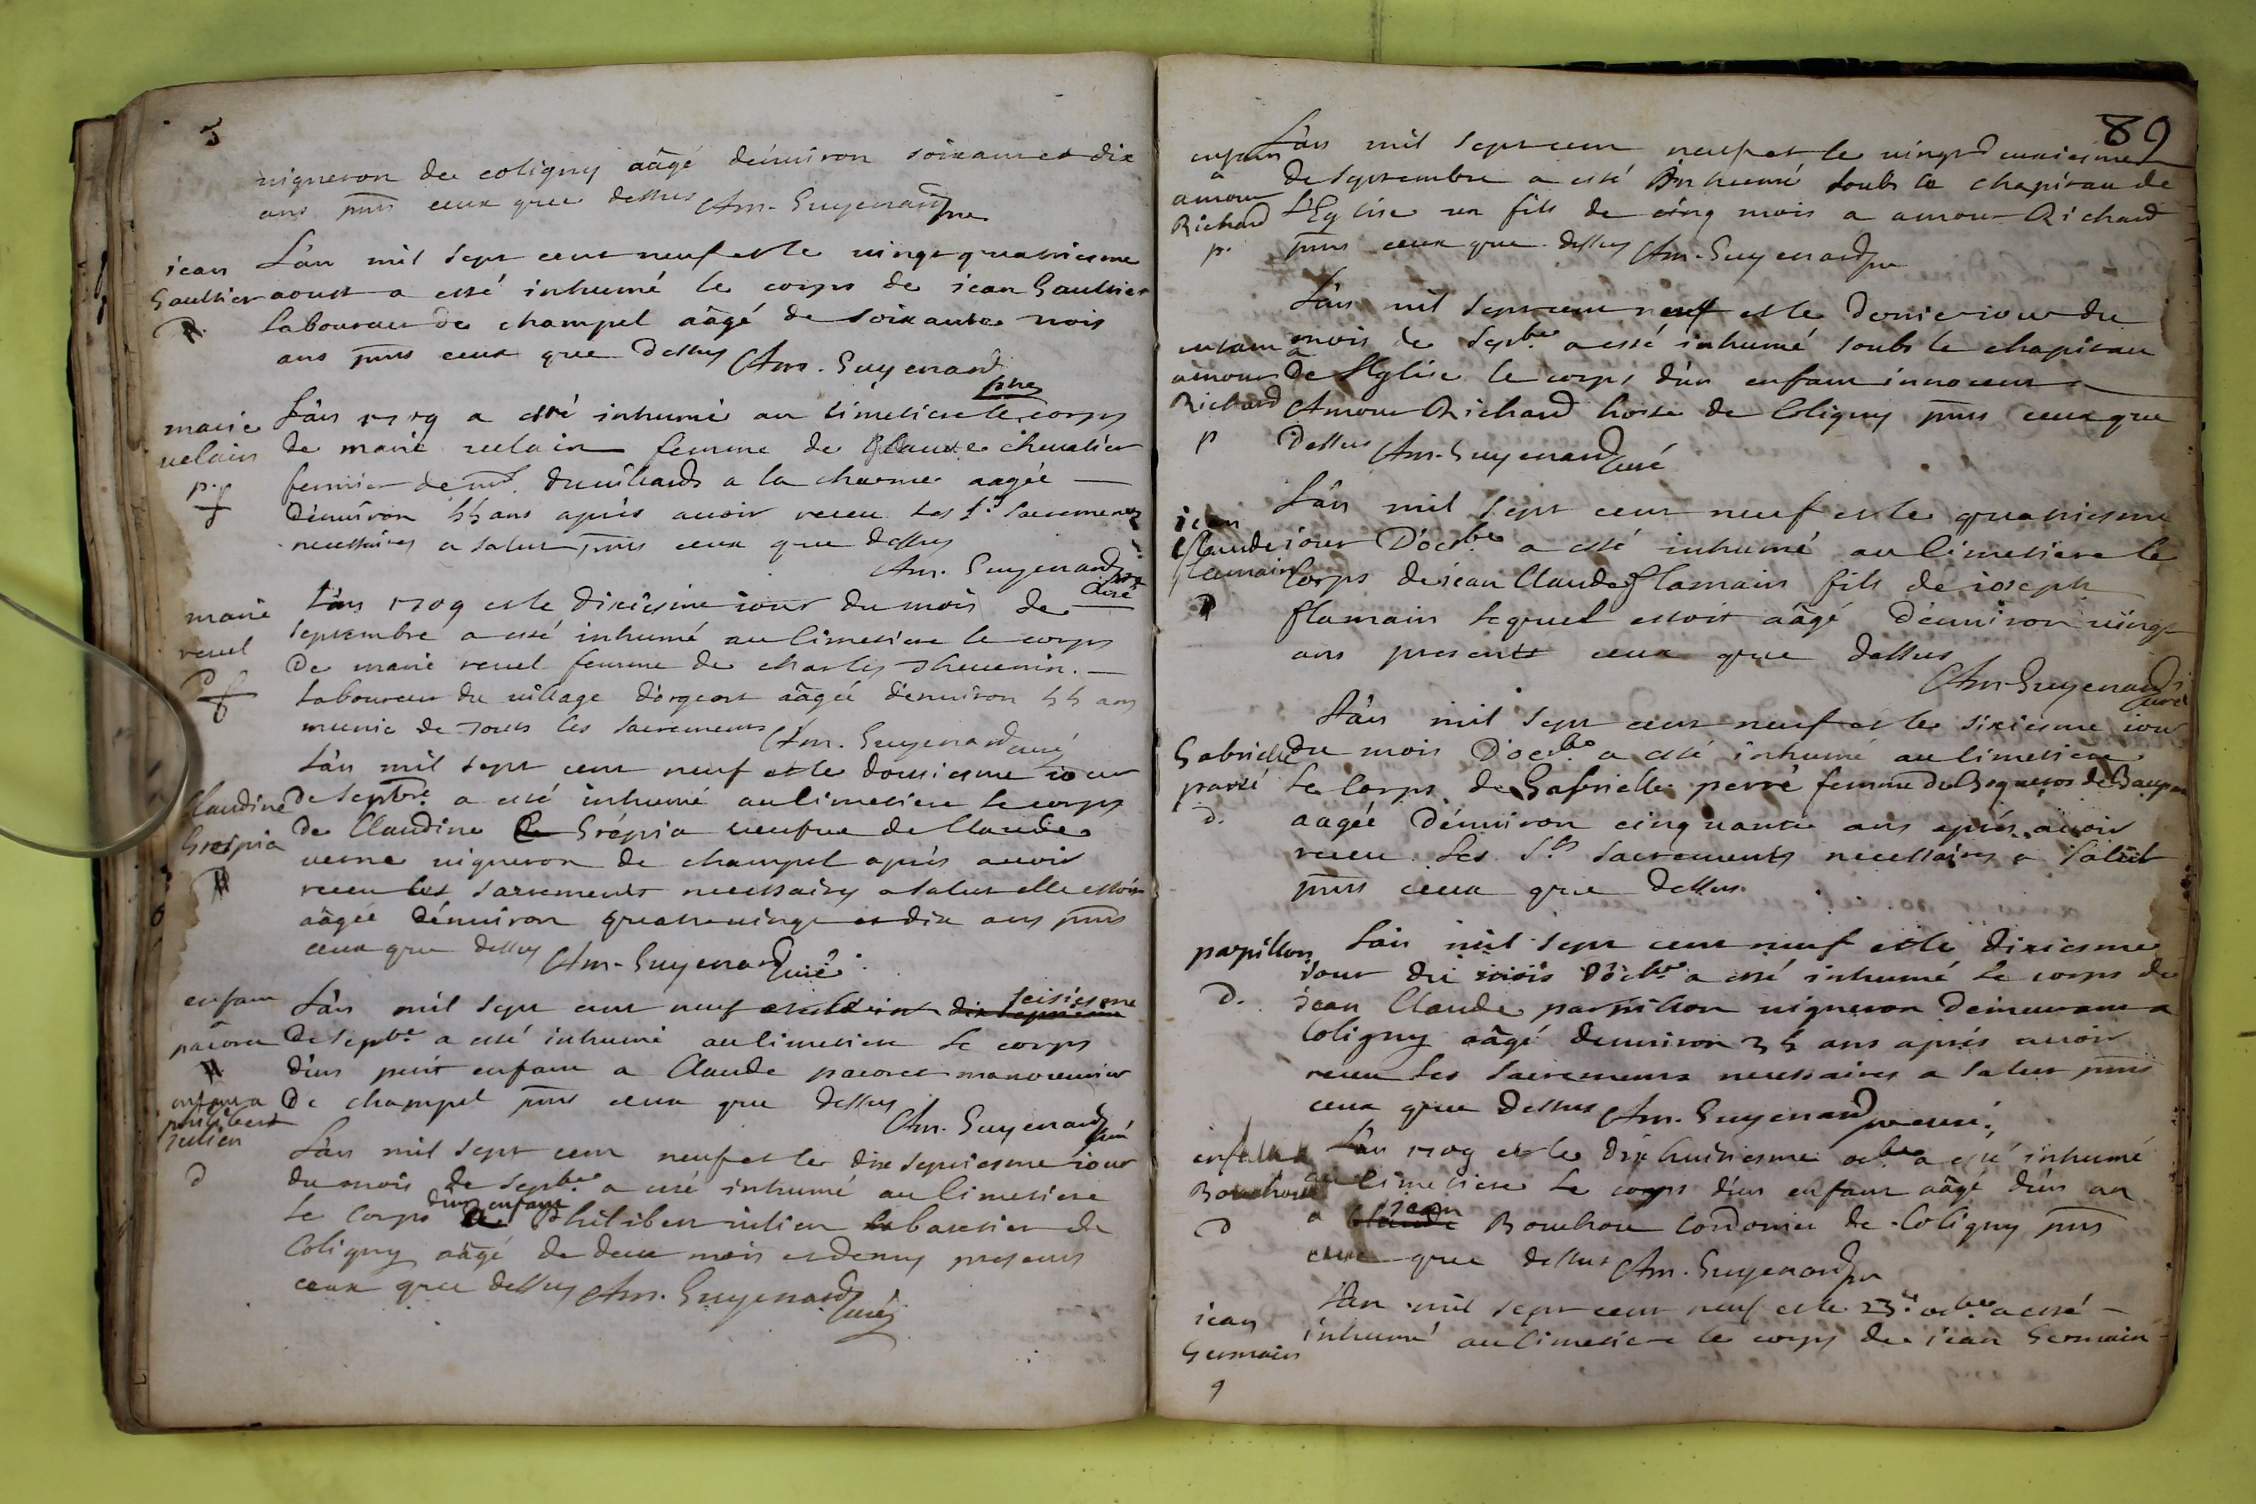 vigneron de coligny aâgé d'environ soixante et dix
ans pnts ceux que dessus Am. Guyenard pre
jean
Gaultier
L'an mil sept cent neuf et le vingt quatriesme
aoust a esté inhumé le corps de jean Gaultier
laboureur de champel aâgé de soixante trois
ans pnts ceux que dessus Am. Guyenard
pre
marie
velain
p.
L'an 1709 a esté inhumé au cimetiere le corps
de marie velain femme de Claude chevalier
fermier de mr. a la charme aagée
d'environ 55 ans après avoir receu les Sts sacrements
necessaires a salut pnts ceux que dessus
Am. Guyenard
curé
marie
revel
L'an 1709 et le dixiesme iour du mois de
septembre a esté inhumé au cimetiere le corps
de marie revel femme de charles Thevenin.
laboureur du village d'orgeat aâgée d'environ 55 ans
munie de tous les sacrements Am. Guyenard curé
Claudine
Grespia
L'an mil sept cent neuf et le dousiesme iour
de septbre a esté inhumé au cimetiere le corps
de Claudine Grépia veufue de Claude
verne vigneron de champel après avoir
receu les sacrements necessaires a salut elle estoit
aâgée d'environ quatre vingt et dix ans pnts
ceux que dessus Am. Guyenard curé
enfant
pacoret
L'an mil sept cent neuf seisiesme
de Septbre a esté inhumé au cimetiere le corps
d'un petit enfant a Claude pacoret manouvrier
de champel pnts ceux que dessus
Am. Guyenard curé
enfant a
philibert
julien
d
L'an mil sept cent neuf et le dix septiesme iour
du mois de septbre a esté inhumé au cimetiere
le corps d'un enfant Philibert iulien cabaretier de
Coligny aâgé de deux mois et demy presents
ceux que dessus Am. Guyenard curé
89
enfant
a
amour
Richard
p.
L'an mil sept cent neuf et le vingt deuxiesme
de septembre a esté inhumé soubs le chapiteau de
L'Eglise un fils de cinq mois a amour Richard
pnts ceux que dessus Am. Guyenard pre
enfant
a
amour
Richard
p
L'an mil sept cent neuf et le dernier iour du
mois de septbre a esté inhumé soubs le chapiteau
de l'Eglise le corps d'un enfant innocent a
Amour Richard hoste de Coligny pnts ceux que
dessus Am. Guyenard curé
jean
Claude
flamain
L'an mil sept cent neuf et le quatriesme
iour D'octbre a esté inhumé au cimetiere le
Corps de jean Claude flamain fils de joseph
flamain lequel estoit aâgé d'environ vingt
ans presents ceux que dessus
Am. Guyenard
curé
Gabrielle
parré
d.
L'an mil sept cent neuf et le sixiesme iour
du mois D'octbre a esté inhumé au cimetiere
le Corps de Gabrielle perré femme
aâgée d'environ cinquante ans après avoir
receu les Sts sacrements necessaires a salut
pnts ceux que dessus.
papillon
d.
L'an mil sept cent neuf et le dixiesme
iour du mois D'octbre a esté inhumé le corps de
jean Claude papillon vigneron demeurant a
Coligny aâgé d'environ 35 ans après avoir
receu les sacrements necessaires a salut pnts
ceux que dessus Am. Guyenard pre curé
enfant a
Bouchou
d
L'an 1709 et le dix huitiesme octbre a esté inhumé
au cimetiere le corps d'un enfant aâgé d'un an
a Claude jean Bouchou Cordonier de Coligny pnts
ceux que dessus Am. Guyenard pre
jean
Germain
L'an mil sept cent neuf et le 23e octbre a esté
inhumé au cimetiere le corps de jean Germain